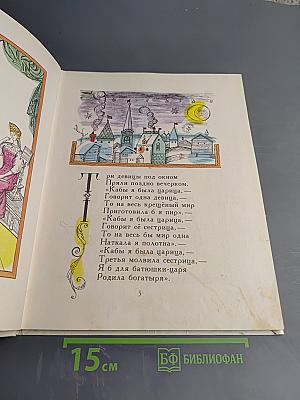 Три девицы под окном
Пряли поздно вечерком.
«Кабы я была царица,—
Говорит одна девица,—
То на весь крещёный мир
Приготовила б я пир».—
«Кабы я была царица,—
Говорит её сестрица,—
То на весь бы мир одна
Наткала я полотна».—
«Кабы я была царица,—
Третья молвила сестрица,—
Я б для батюшки-царя
Родила богатыря».
3
15 см
БФ БИБЛИОФАН